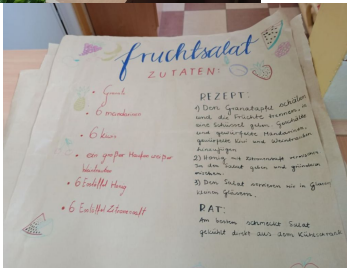 fruchtsalat
ZUTATEN:
• 6 mandarinen
• 6 kiwi
• ein großer Haufen
Weintrauben
• 6 Esslöffel Honig
• 6 Esslöffel Zitronensaft
REZEPT:
1) Den Granatapfel schälen
und die Früchte trennen, in
eine Schüssel geben. Geschälte
und gewürfelte Mandarinen,
gewürfelte Kiwi und Weintrauben
hinzufügen
2) Honig mit Zitronensaft vermischen
zu dem Salat geben und gründlich
mischen.
3) Den Salat servieren wir in
kleinen Gläsern.
RAT:
Am besten schmeckt Salat
gekühlt direkt aus dem Kühlschrank